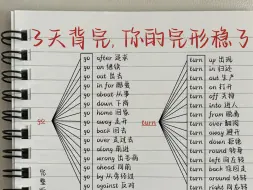 3天背完, 你的完形稳了
go
go after 追求
go on 继续
go out 出去
go in for 酷爱
go about 从事
go down 下降
go home 回家
go away 走开
go back 回去
go over 走过去
go along 前进
go wrong 出毛病
go ahead 前进
go by 从旁经过
go against 反对
turn
turn up 出现
turn in 归还
turn out 生产
turn on 打开
turn off 关掉
turn into 进入
turn from
turn over 翻阅
turn away 避开
turn down 拒绝
turn round 转身
turn left 向左转
turn right 向右转
turn back